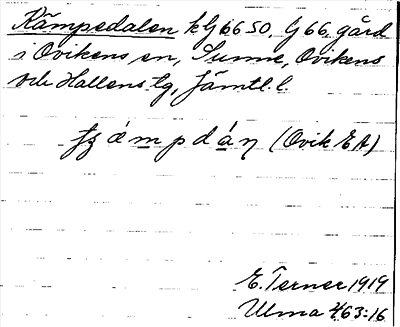 Kämpedalen kG66SO, G66, gård
i Ovikens sn, Sunne, Ovikens
och Hallens tg, Jämtl. l.
(Ovik EA)
E. Terner 1919
Ulma 463:16